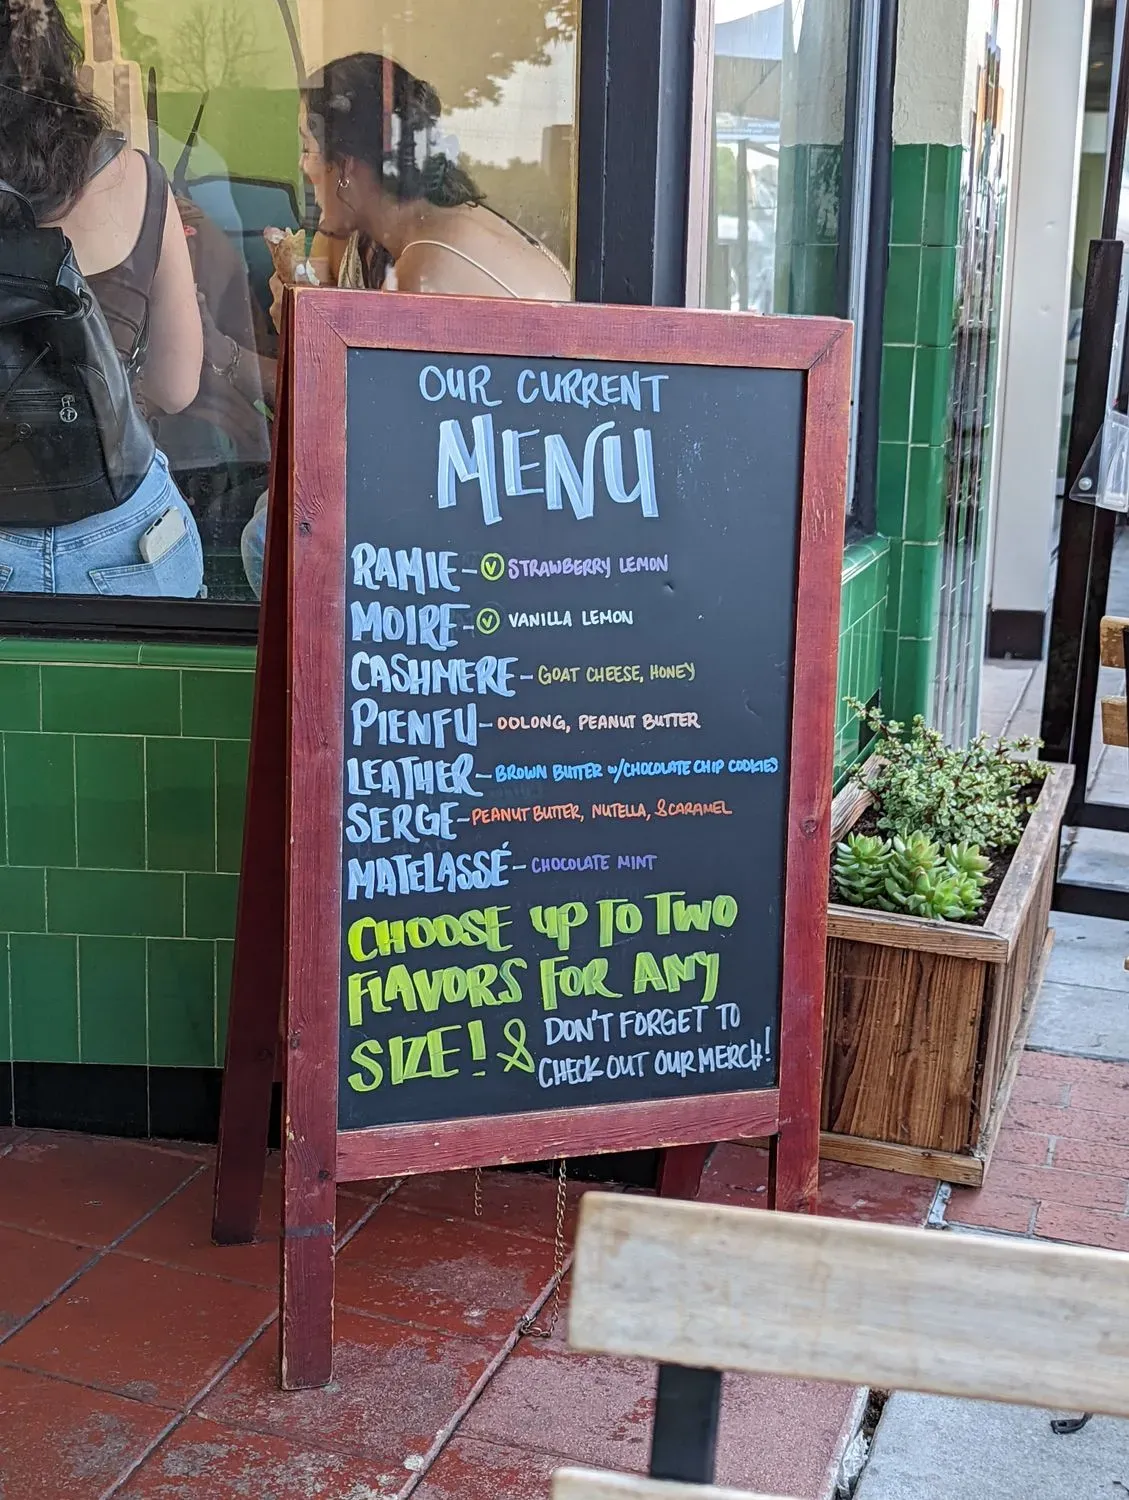 OUR CURRENT
MENU
RAMIE - Ⓥ STRAWBERRY LEMON
MOIRE - Ⓥ VANILLA LEMON
CASHMERE - GOAT CHEESE, HONEY
PIENFU - OOLONG, PEANUT BUTTER
LEATHER - BROWN BUTTER w/CHOCOLATE CHIP COOKIES
SERGE - PEANUT BUTTER, NUTELLA, & CARAMEL
MATELASSÉ - CHOCOLATE MINT
CHOOSE UP TO TWO
FLAVORS FOR ANY
SIZE! & DON'T FORGET TO
CHECK OUT OUR MERCH!